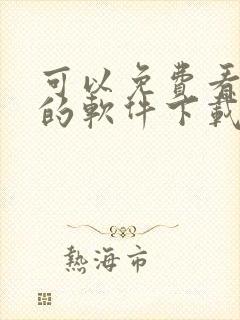 可以免费看
的軟件下載
熱海市